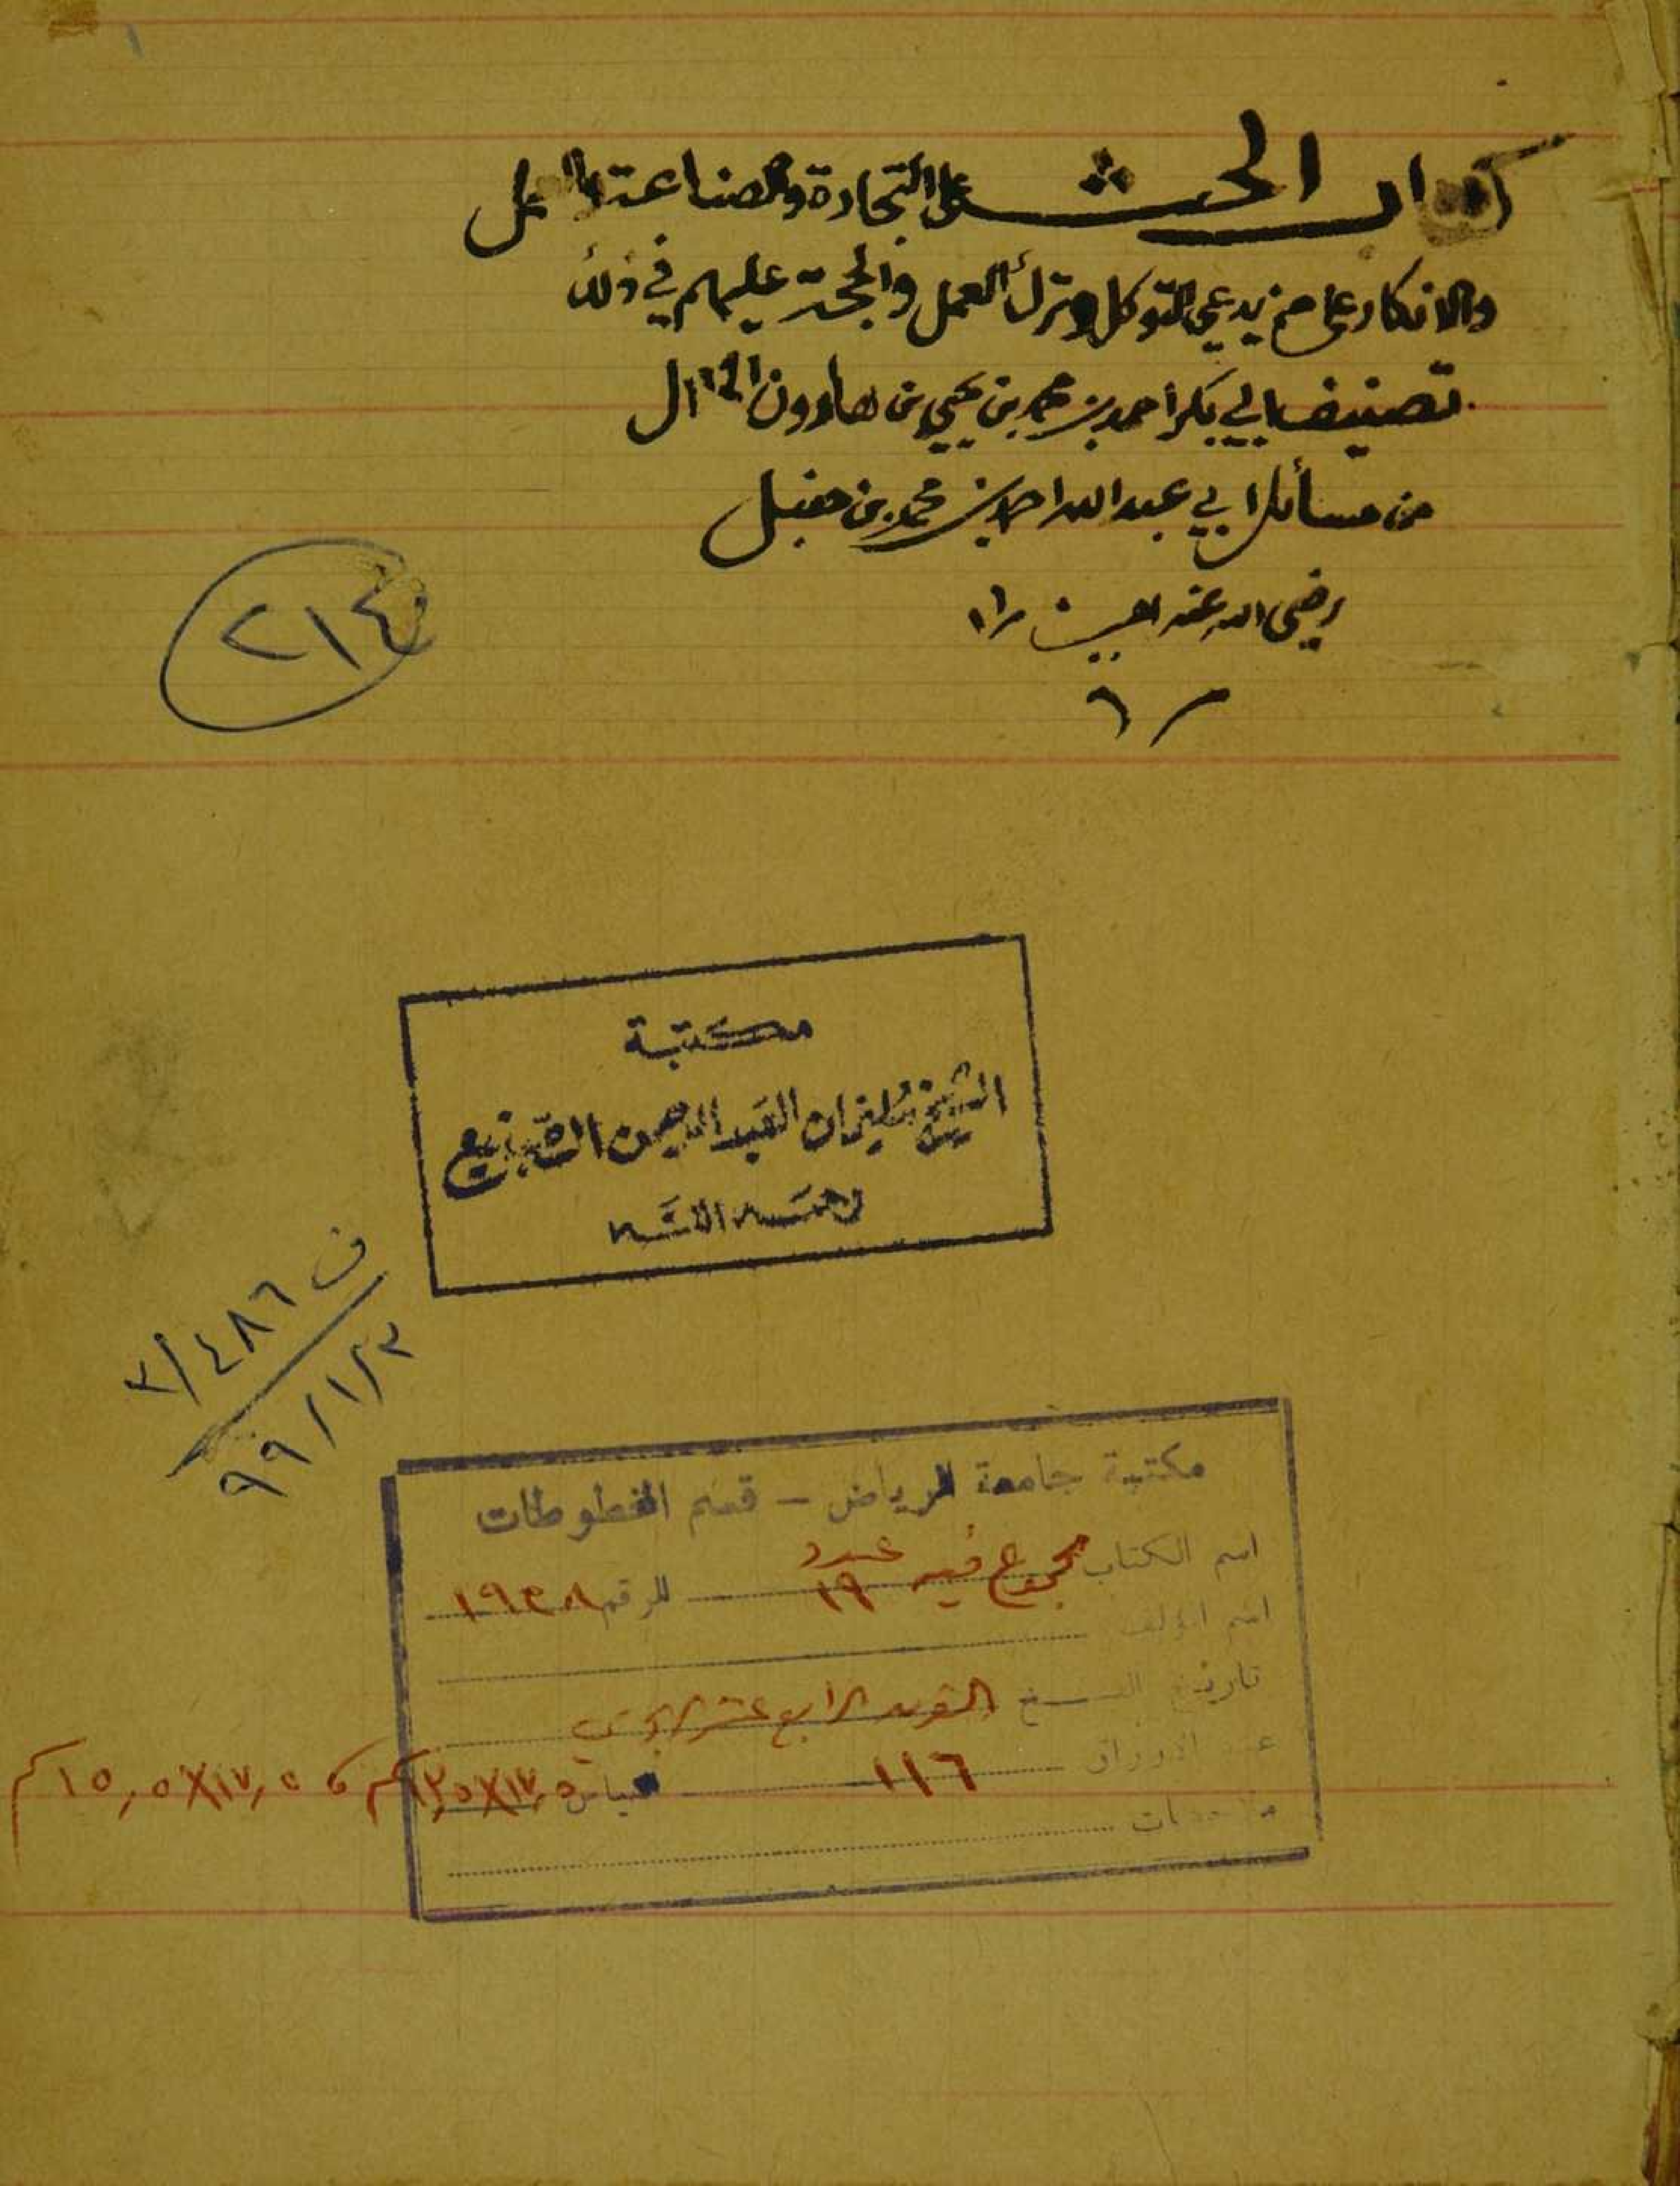 ١
كتاب الحث على التجارة والصناعة والعمل
والانكار على من يدعي التوكل وترك العمل والحجة عليهم في ذلك
تصنيف ابي بكر احمد بن محمد بن يحيى بن هارون الخلال
من مسائل ابي عبدالله احمد بن محمد بن حنبل
رضي الله عنه امين
٢١٤
مكتبة
الشيخ سليمان العبد الرحمن
رحمه الله
ف ٣/٤٨٦
٩٩/١/٢٣
مكتبة جامعة الرياض - قسم المخطوطات
اسم الكتاب مجموع فيه عدد ١٩ الرقم ١٩٣٨
اسم المؤلف
تاريخ النسخ القرن الرابع عشر الهجري
عدد الاوراق ١١٦ القياس ١٧,٥X١٢,٥ سم ١٧,٥X١٥,٥ سم
ملاحظات